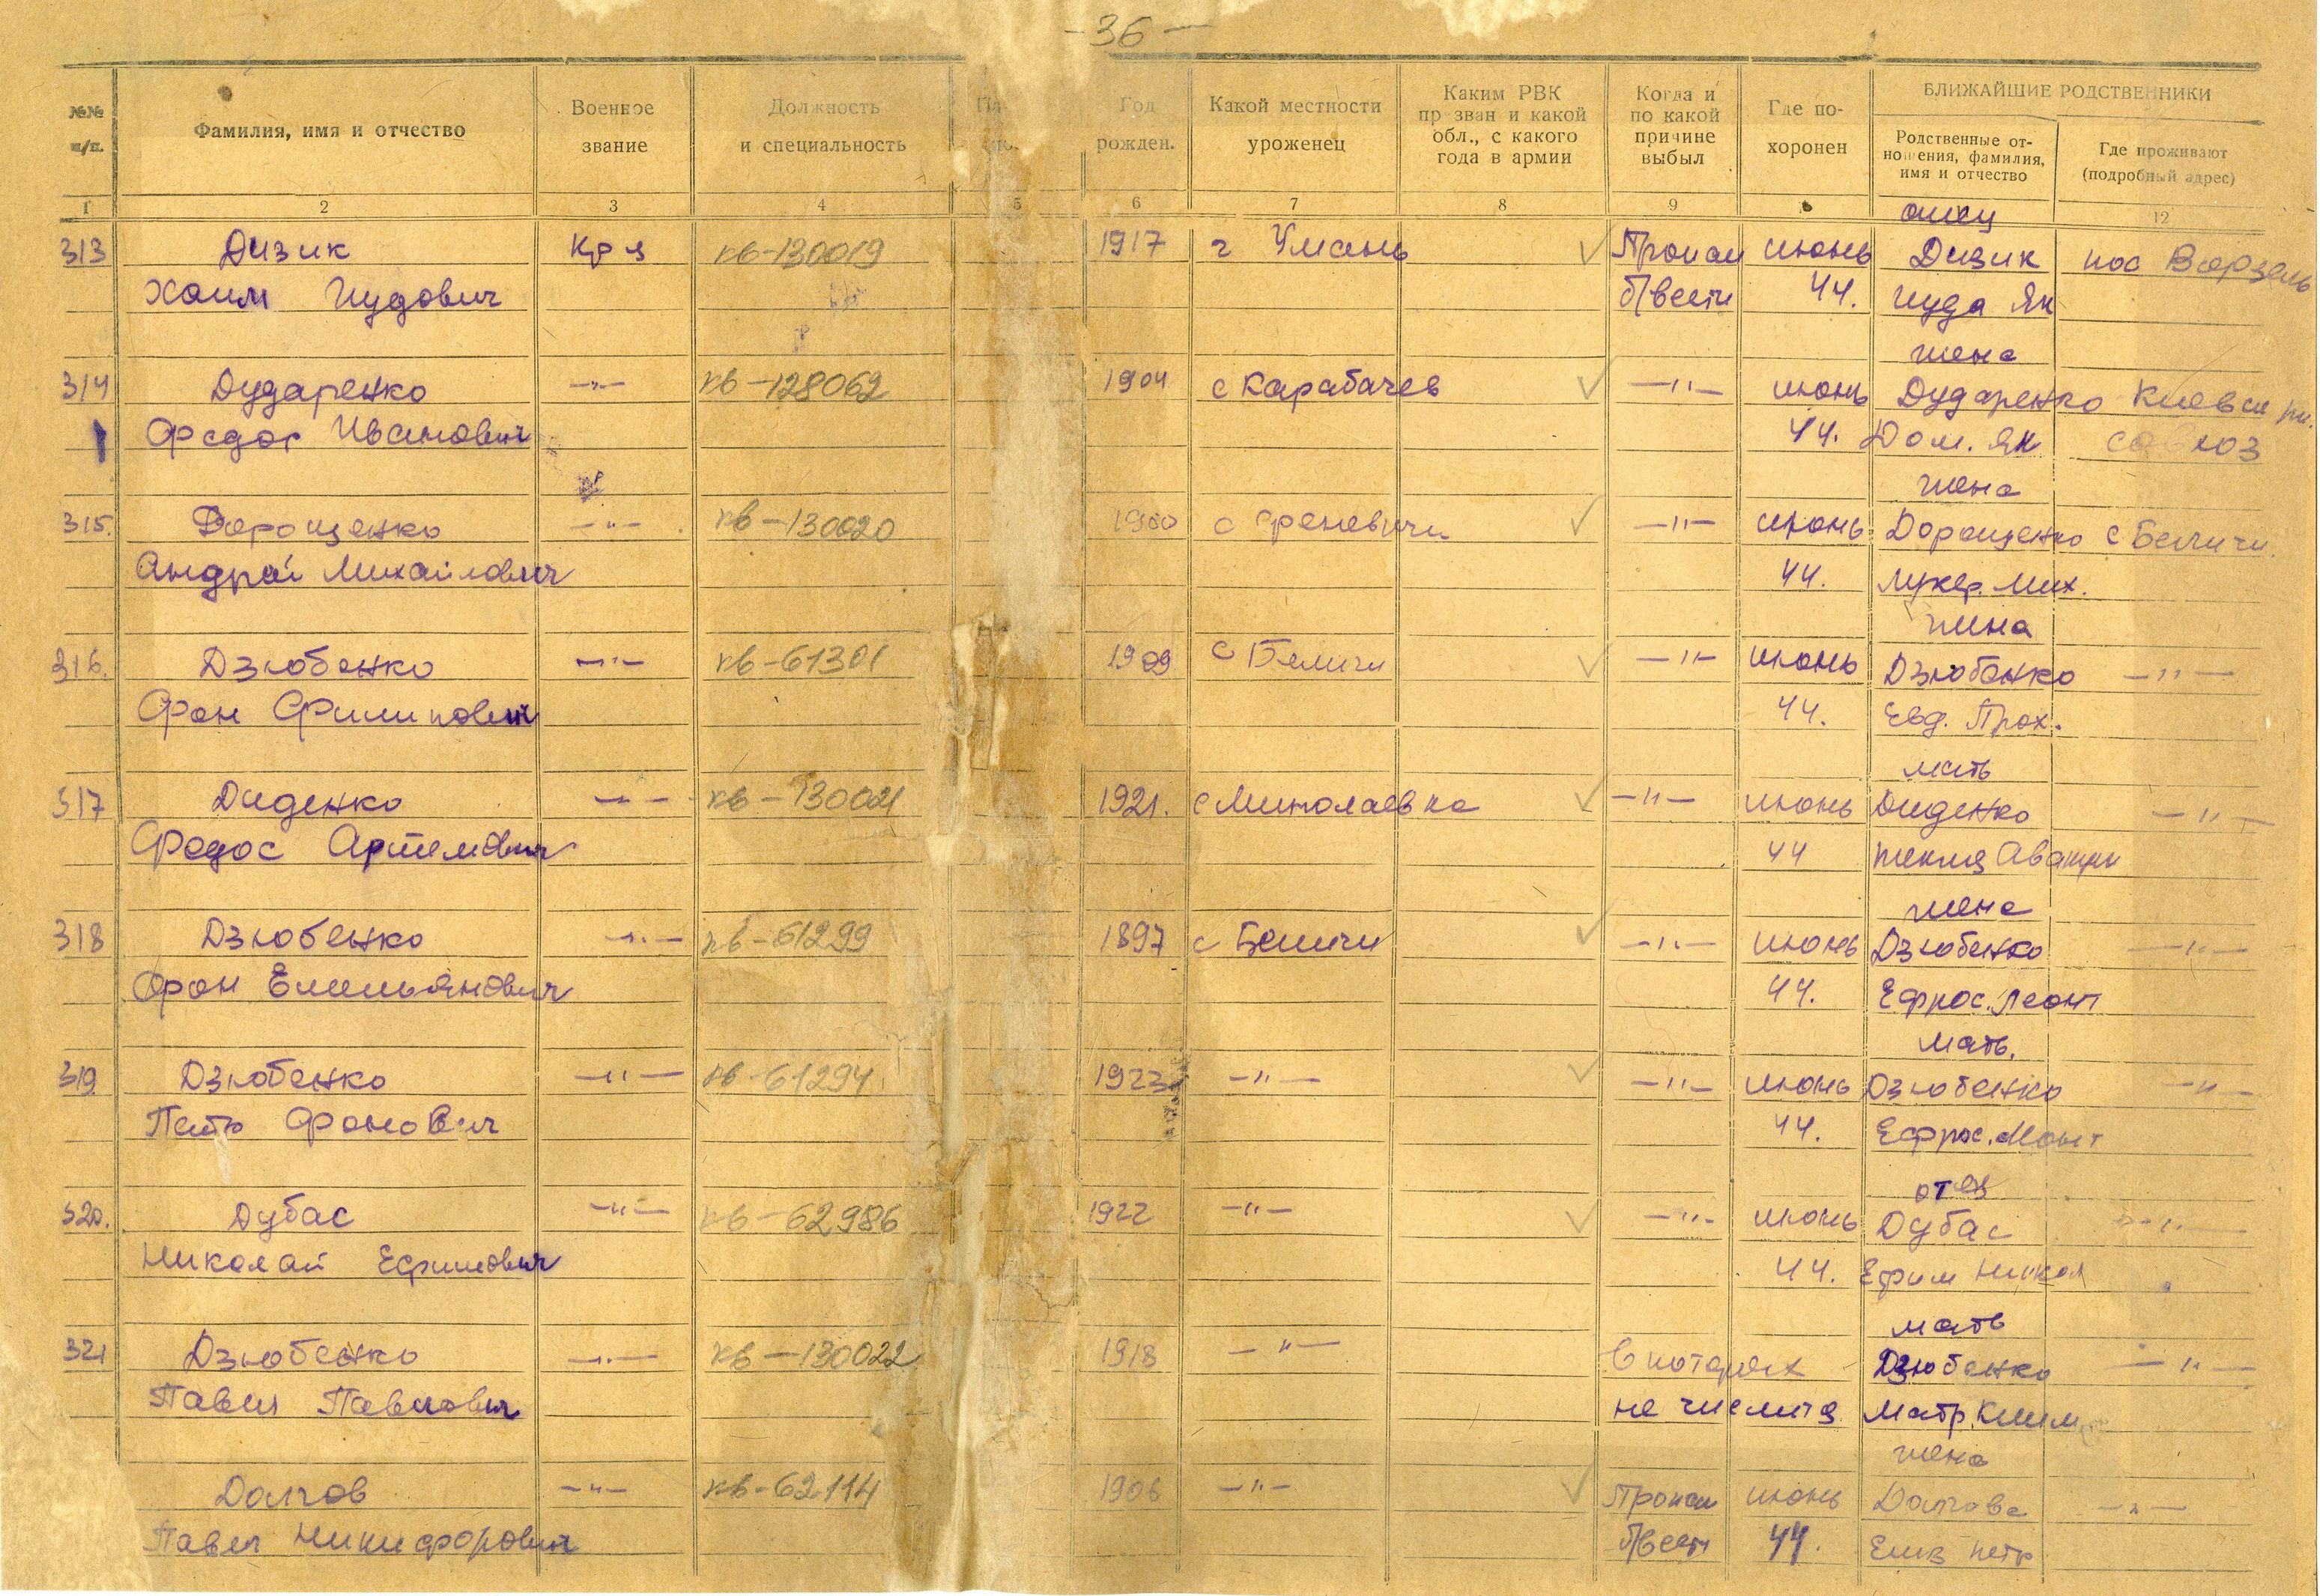 -36-
№№ п/п.
Фамилия, имя и отчество
Военное звание
Должность и специальность
Год рожден.
Какой местности уроженец
Каким РВК пр зван и какой обл., с какого года в армии
Когда и по какой причине выбыл
Где по-хоронен
БЛИЖАЙШИЕ РОДСТВЕННИКИ
Родственные от-ношения, фамилия, имя и отчество
Где проживают (подробный адрес)
1 2 3 4 5 6 7 8 9 12
отец
313 Дизик Кр-ц кв-130019 1917 г Умань Пропал июнь Дизик пос Ворзель
Хаим Иудович б/вести 44. Иуда Як
жена
314 Дударенко —"— кв-128062 1904 с Карабачев —"— июнь Дударенко Киевск
Федос Иванович 44. Дом. Як
жена
315. Дорошенко —"— кв-130020 1900 с —"— июнь Дорошенко с Беличи.
Андрей Михайлович 44. Лукер. Мих.
жена
316. Дзюбенко —"— кв-61301 1909 с Беличи —"— июнь Дзюбенко —"—
Фан Филипович 44. Евд. Прох.
мать
317 Диденко —"— кв-130021 1921. с Миколаевка —"— июнь Диденко —"—
Федос Артемович 44
жена
318 Дзюбенко —"— кв-61299 1897 с Беличи —"— июнь Дзюбенко —"—
Фрон Емельянович 44. Ефрос. Леонт
мать.
319. Дзюбенко —"— кв-61294 1923 —"— —"— июнь Дзюбенко —"—
Петр Фронович 44. Ефрос.
отец
320. Дубас —"— кв-62986 1922 —"— —"— июнь Дубас —"—
Николай Ефимович 44. Ефим Никол
мать
321 Дзюбенко —"— кв-130022 1918 —"— в потерях Дзюбенко —"—
Павел Павлович не числится Матр. Клим
жена
Долгов —"— кв-62114 1906 —"— Пропал июнь Долгова —"—
Павел Никифорович б/вести 44. Елиз петр